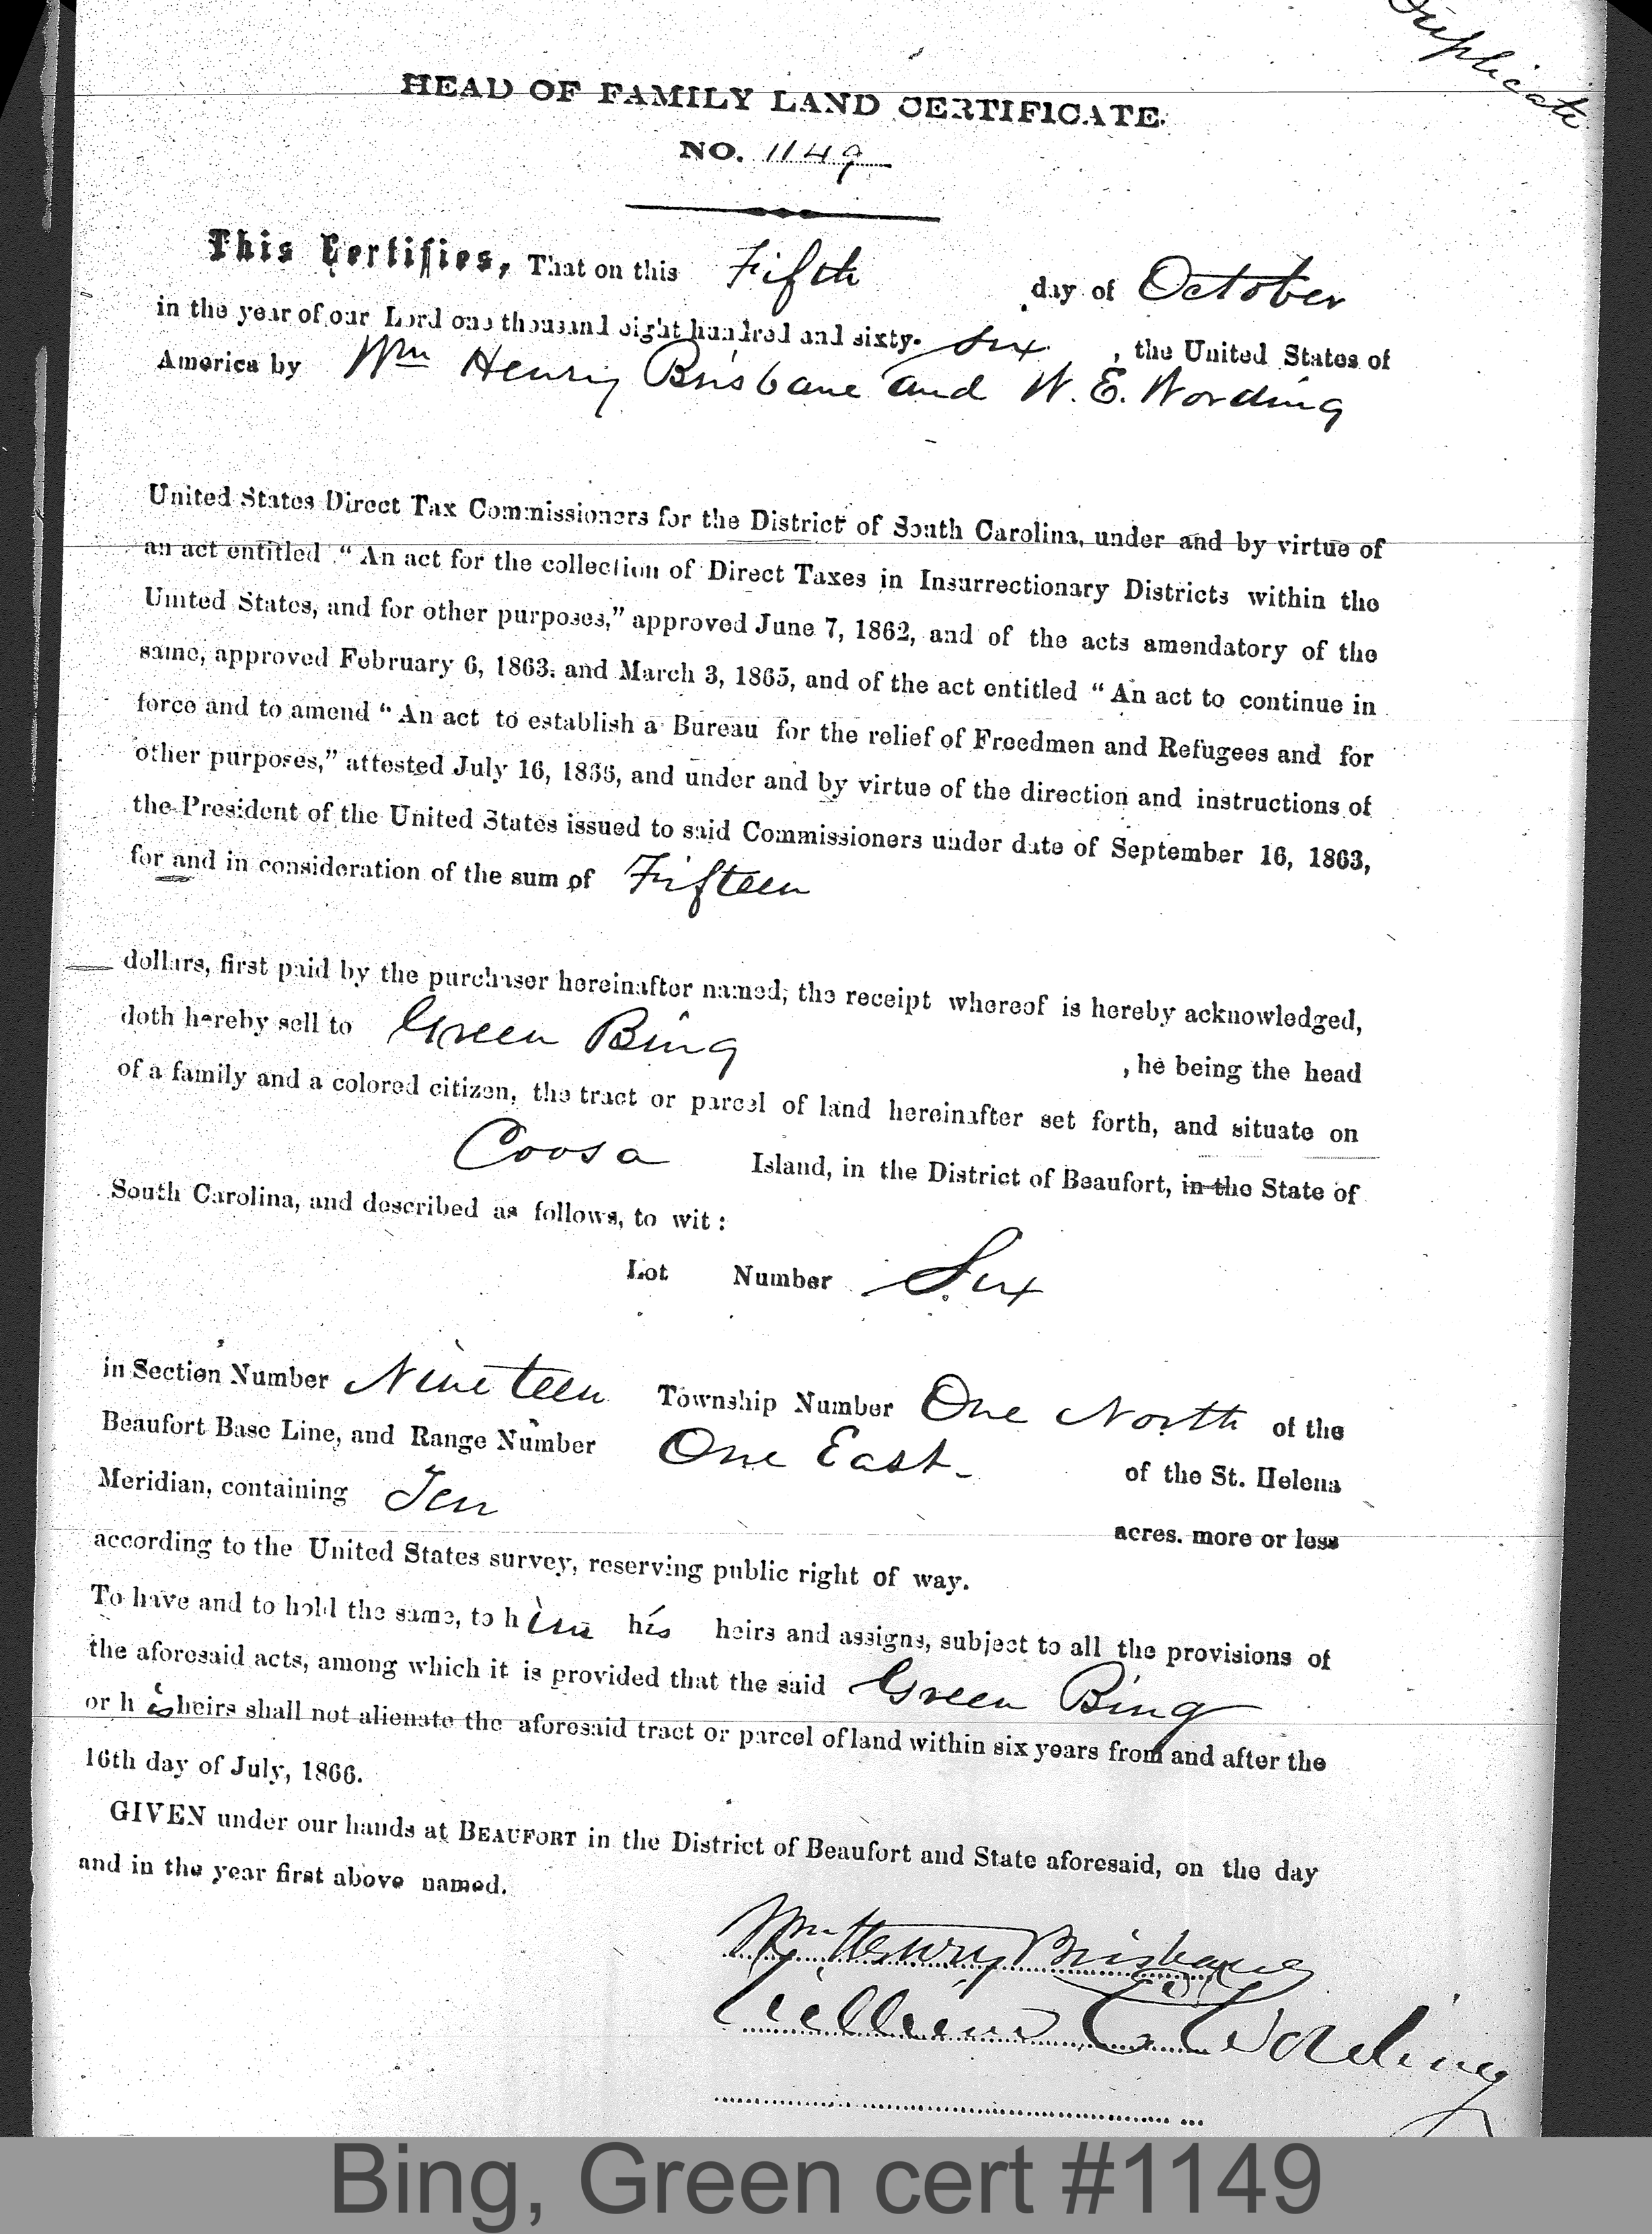 Duplicate
HEAD OF FAMILY LAND CERTIFICATE.
NO. 1149
This Certifies, That on this Fifth day of October
in the year of our Lord one thousand eight hundred and sixty-six, the United States of
America by Wm Henry Brisbane and W. E. Wording
United States Direct Tax Commissioners for the District of South Carolina, under and by virtue of
an act entitled "An act for the collection of Direct Taxes in Insurrectionary Districts within the
United States, and for other purposes," approved June 7, 1862, and of the acts amendatory of the
same, approved February 6, 1863. and March 3, 1865, and of the act entitled "An act to continue in
force and to amend "An act to establish a Bureau for the relief of Freedmen and Refugees and for
other purposes," attested July 16, 1866, and under and by virtue of the direction and instructions of
the President of the United States issued to said Commissioners under date of September 16, 1863,
for and in consideration of the sum of Fifteen
dollars, first paid by the purchaser hereinafter named, the receipt whereof is hereby acknowledged,
doth hereby sell to Green Bing , he being the head
of a family and a colored citizen, the tract or parcel of land hereinafter set forth, and situate on
Coosa Island, in the District of Beaufort, in the State of
South Carolina, and described as follows, to wit:
Lot Number Six
in Section Number Nineteen Township Number One North of the
Beaufort Base Line, and Range Number One East of the St. Helena
Meridian, containing Ten acres. more or less
according to the United States survey, reserving public right of way.
To have and to hold the same, to him his heirs and assigns, subject to all the provisions of
the aforesaid acts, among which it is provided that the said Green Bing
or his heirs shall not alienate the aforesaid tract or parcel of land within six years from and after the
16th day of July, 1866.
GIVEN under our hands at BEAUFORT in the District of Beaufort and State aforesaid, on the day
and in the year first above named.
Wm Henry Brisbane
William E. Wording
Bing, Green cert #1149